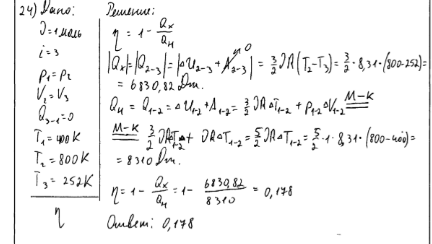 24) Дано:
ν = 1 моль
i = 3
p₁ = p₂
V₂ = V₃
Q₃₋₁ = 0
T₁ = 400 K
T₂ = 800 K
T₃ = 252 K
η
Решение:
η = 1 - Qₓ/Qн
|Qₓ| = |Q₂₋₃| = |ΔU₂₋₃ + A₂₋₃| = 3/2 νR(T₂-T₃) = 3/2 · 8,31 · (800-252) =
= 6830,82 Дж.
Qн = Q₁₋₂ = ΔU₁₋₂ + A₁₋₂ = 3/2 νRΔT₁₋₂ + p₁₋₂ΔV₁₋₂ М-К
М-К 3/2 νRΔT₁₋₂ + νRΔT₁₋₂ = 5/2 νRΔT₁₋₂ = 5/2 · 1 · 8,31 · (800-400) =
= 8310 Дж.
η = 1 - Qₓ/Qн = 1 - 6830,82/8310 = 0,178
Ответ: 0,178